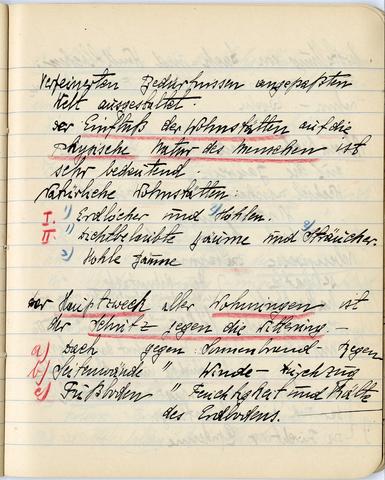 verfeinerten Bedürfnissen angepaßten
Welt ausgestaltet.
Der Einfluß der Wohnstätten auf die
physische Natur des Menschen ist
sehr bedeutend.
Natürliche Wohnstätten:
I. 1) Erdlöcher und 2) Höhlen.
II. 1) Dichtbelaubte Bäume und 3) Sträucher
2) hohle Bäume
Der Hauptzweck aller Wohnungen ist
der Schutz gegen die Witterung. —
a) Dach gegen Sonnenbrand - Regen
b) Seitenwände " Winde - Luftzug
c) Fußboden " Feuchtigkeit und Kälte
des Erdbodens.